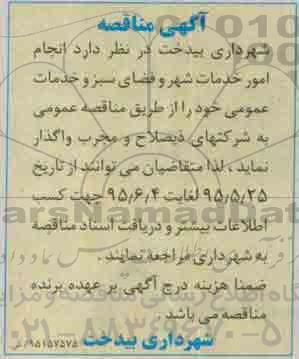 آگهی مناقصه
شهرداری بیدخت در نظر دارد انجام
امور خدمات شهر و فضای سبز و خدمات
عمومی خود را از طریق مناقصه عمومی
به شرکتهای ذیصلاح و مجرب واگذار
نماید ، لذا متقاضیان می توانند از تاریخ
۹۵٫۵٫۲۵ لغایت ۹۵٫۶٫۴ جهت کسب
اطلاعات بیشتر و دریافت اسناد مناقصه
به شهرداری مراجعه نمایند .
ضمنا هزینه درج آگهی بر عهده برنده
مناقصه می باشد .
شهرداری بیدخت
۹۵۱۵۷۵۷۵